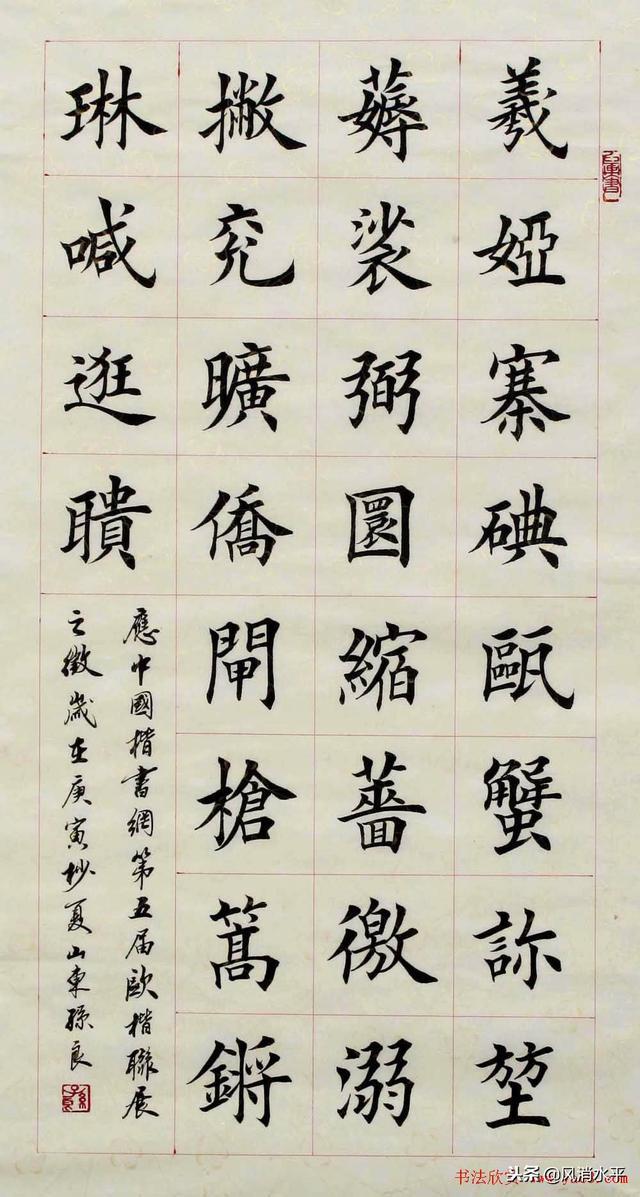 羲婭寨碘甌蟹堃
薅裟弼圜縮薔徼溺
撇兖曠僑閘槍篙鏘
琳喊逛聵
應中國楷書網第五届歐楷聯展
之徵歲在庚寅杪夏山東孫良
书法欣
头条 @风消水平